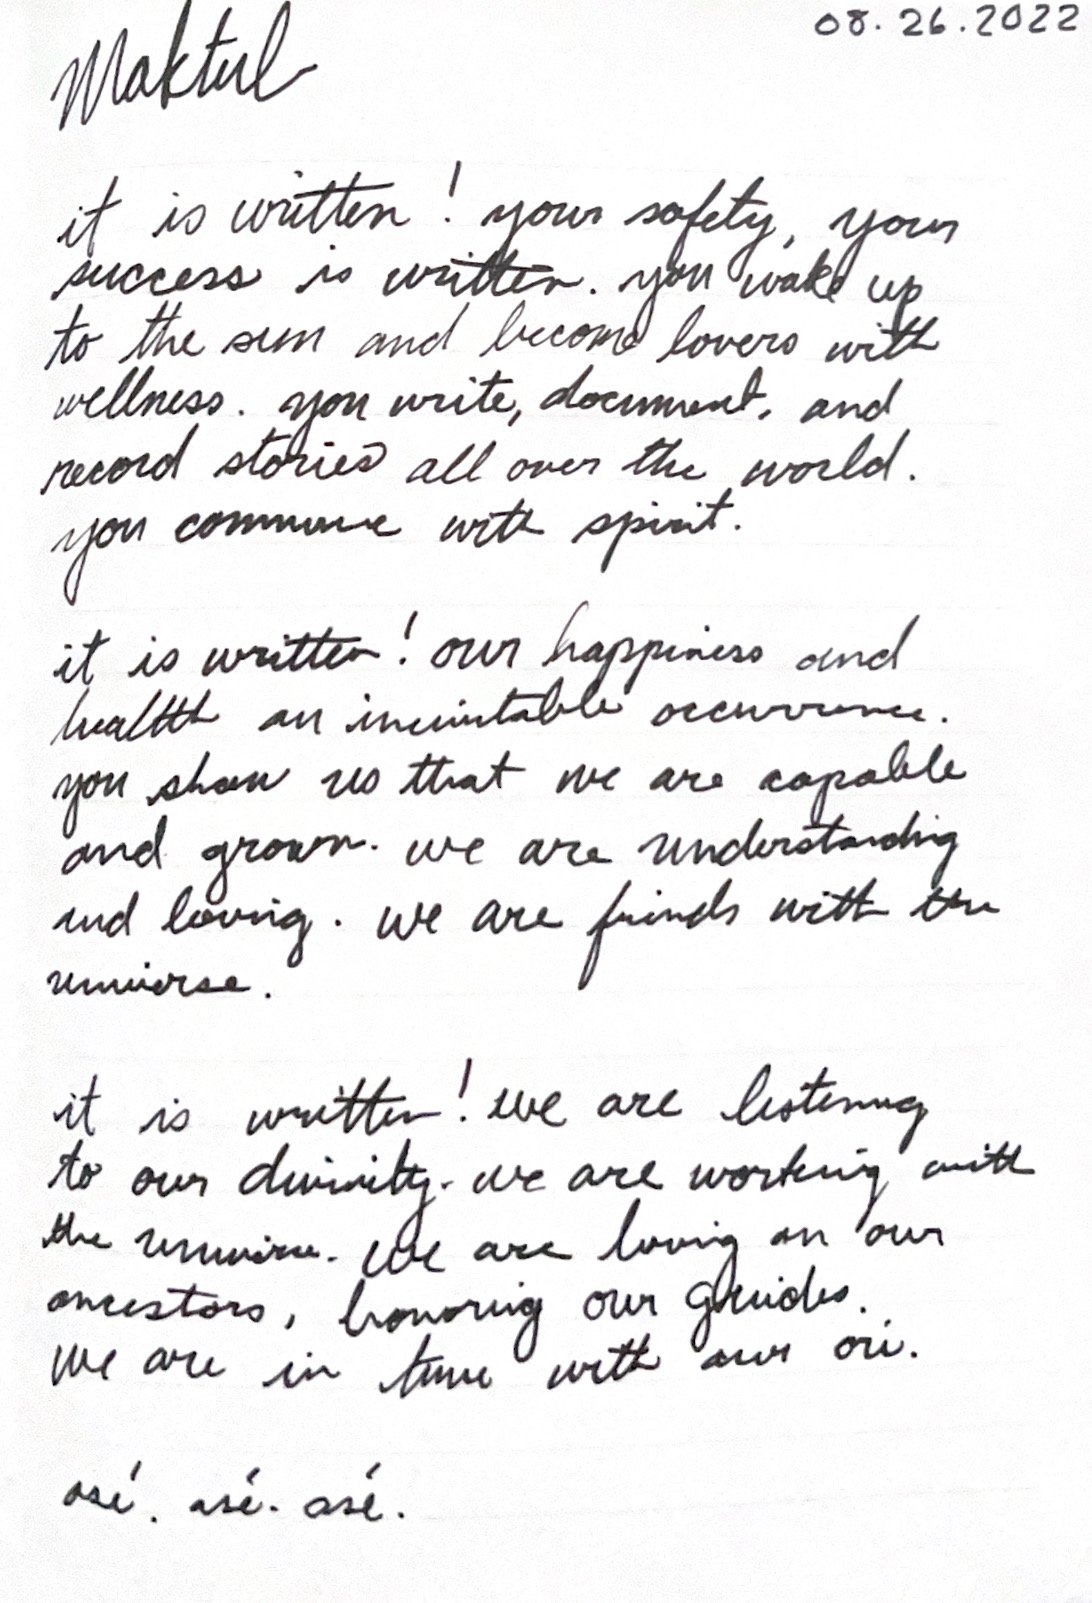 08.26.2022
Maktub
it is written! your safety, your
success is written. you wake up
to the sun and become lovers with
wellness. you write, document, and
record stories all over the world.
you commune with spirit.
it is written! our happiness and
health an inevitable occurrence.
you show us that we are capable
and grown. we are understanding
and loving. we are friends with the
universe.
it is written! we are listening
to our divinity. we are working with
the universe. we are loving on our
ancestors, honoring our guides.
we are in tune with our ori.
asé. asé. asé.